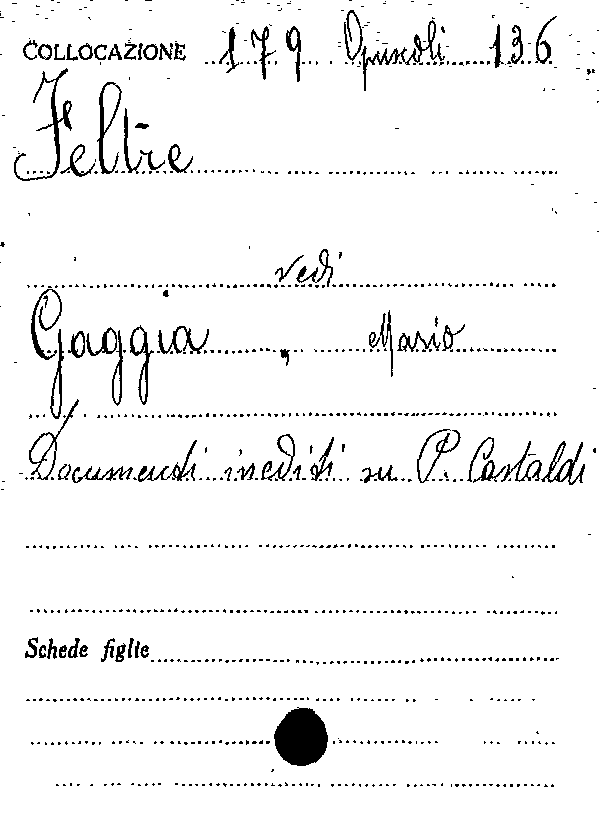 COLLOCAZIONE 179 Opuscoli 136
Feltre
vedi
Gaggia, Mario
Documenti inediti su P. Castaldi
Schede figlie